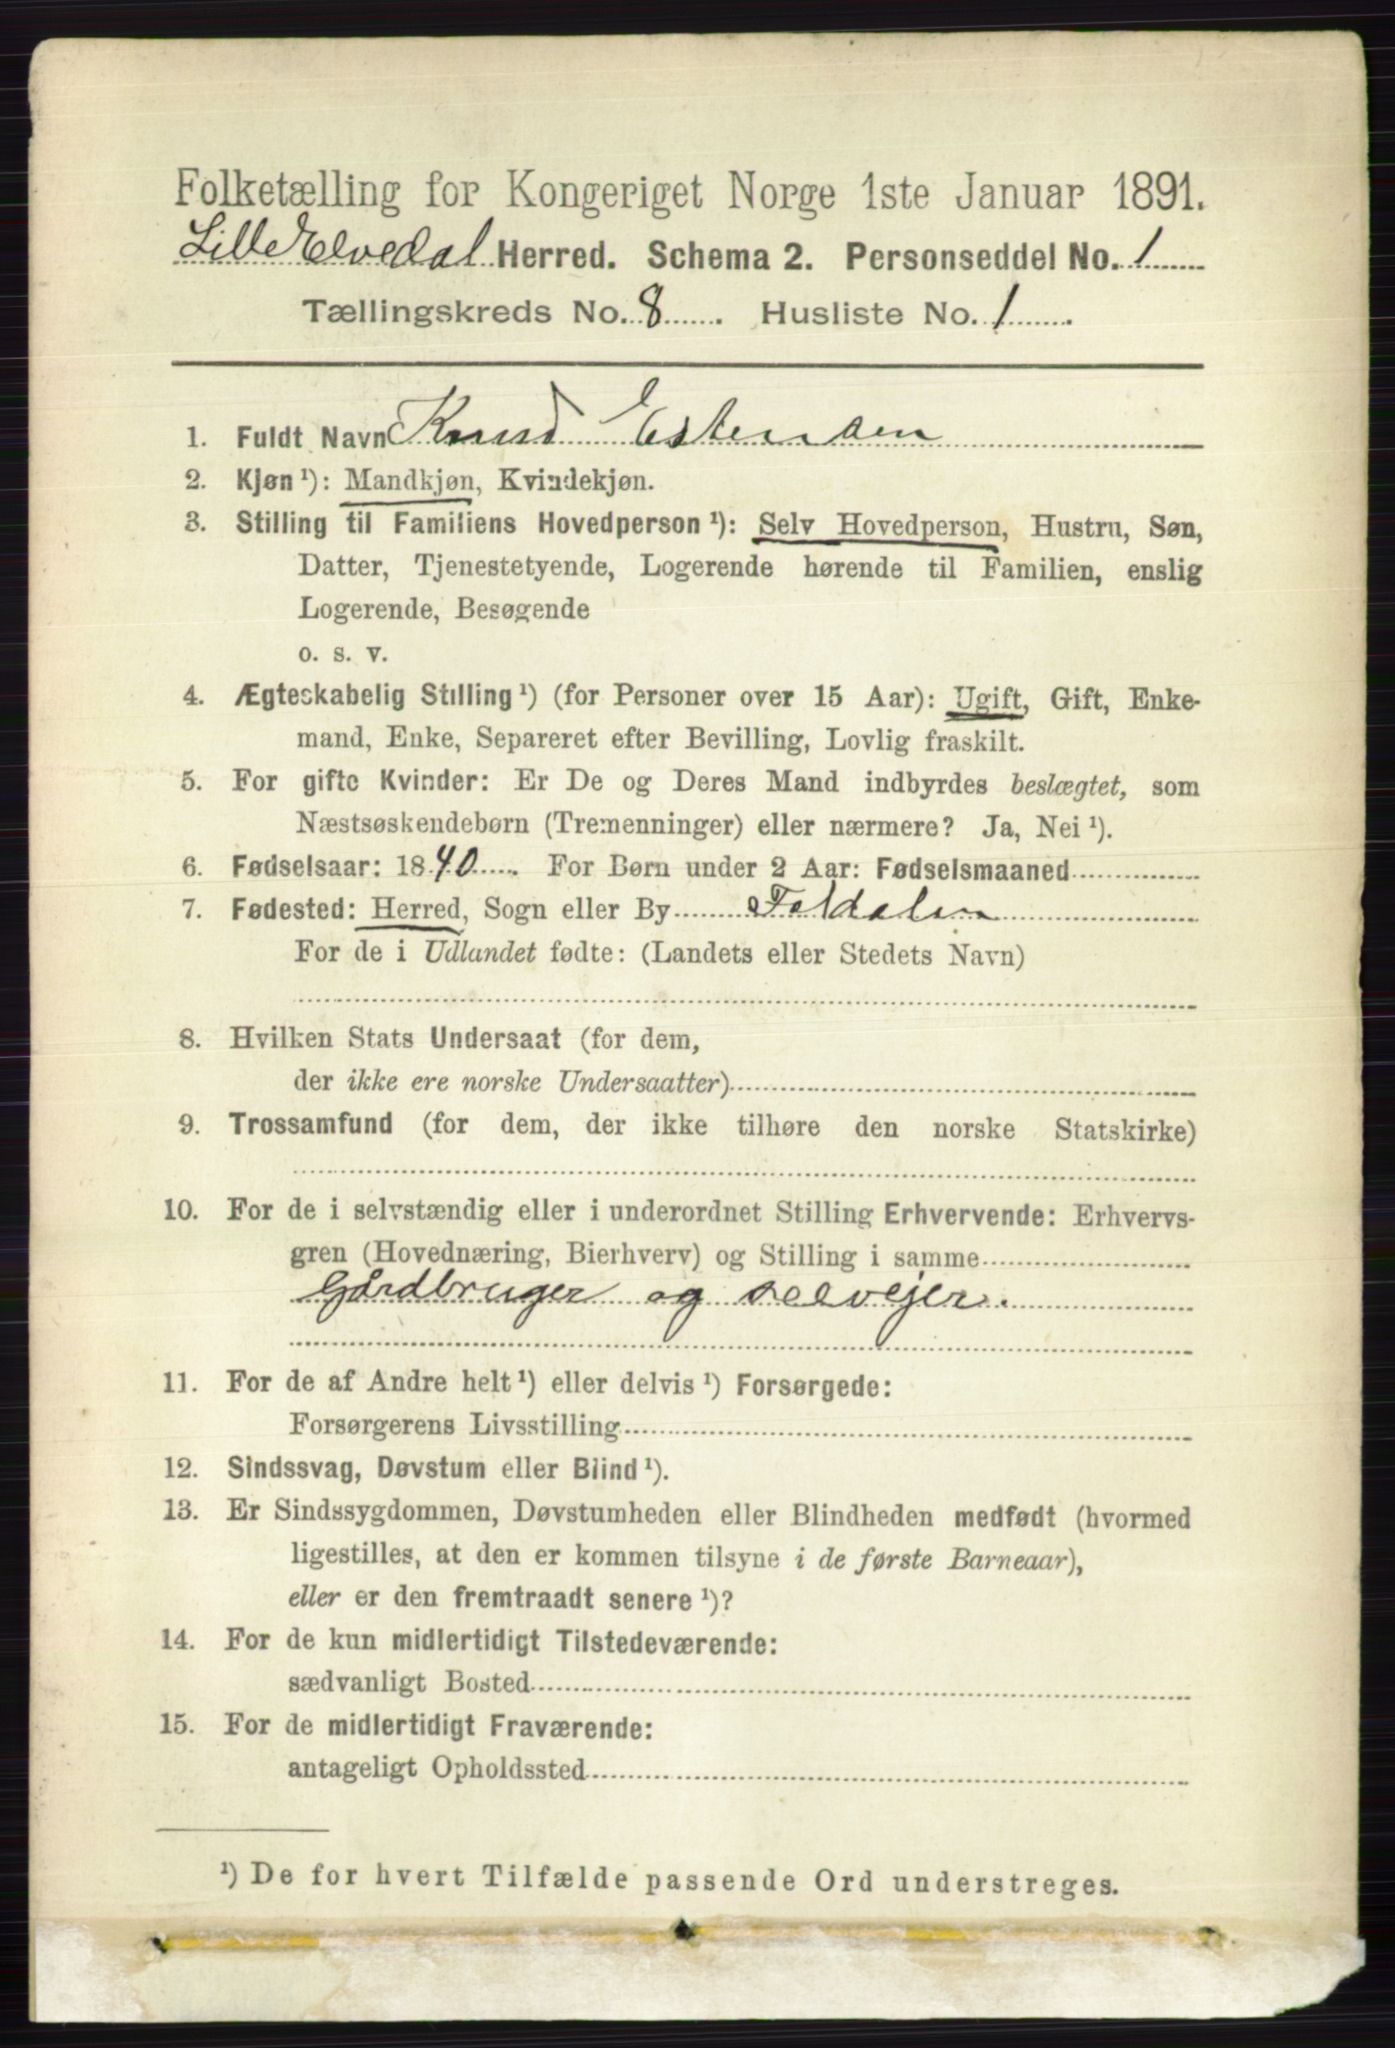 Folketælling for Kongeriget Norge 1ste Januar 1891.
Lille Elvedal Herred. Schema 2. Personseddel No. 1
Tællingskreds No. 8. Husliste No. 1.
1. Fuldt Navn Knud Estensen
2. Kjøn ¹): Mandkjøn, Kvindekjøn.
3. Stilling til Familiens Hovedperson ¹): Selv Hovedperson, Hustru, Søn,
Datter, Tjenestetyende, Logerende hørende til Familien, enslig
Logerende, Besøgende
o. s. v.
4. Ægteskabelig Stilling ¹) (for Personer over 15 Aar): Ugift, Gift, Enke-
mand, Enke, Separeret efter Bevilling, Lovlig fraskilt.
5. For gifte Kvinder: Er De og Deres Mand indbyrdes beslægtet, som
Næstsøskendebørn (Tremenninger) eller nærmere? Ja, Nei ¹).
6. Fødselsaar: 1840. For Børn under 2 Aar: Fødselsmaaned
7. Fødested: Herred, Sogn eller By Foldalen
For de i Udlandet fødte: (Landets eller Stedets Navn)
8. Hvilken Stats Undersaat (for dem,
der ikke ere norske Undersaatter)
9. Trossamfund (for dem, der ikke tilhøre den norske Statskirke)
10. For de i selvstændig eller i underordnet Stilling Erhvervende: Erhvervs-
gren (Hovednæring, Bierhverv) og Stilling i samme
Gårdbruger og selvejer.
11. For de af Andre helt ¹) eller delvis ¹) Forsørgede:
Forsørgerens Livsstilling
12. Sindssvag, Døvstum eller Blind ¹).
13. Er Sindssygdommen, Døvstumheden eller Blindheden medfødt (hvormed
ligestilles, at den er kommen tilsyne i de første Barneaar),
eller er den fremtraadt senere ¹)?
14. For de kun midlertidigt Tilstedeværende:
sædvanligt Bosted
15. For de midlertidigt Fraværende:
antageligt Opholdssted
¹) De for hvert Tilfælde passende Ord understreges.